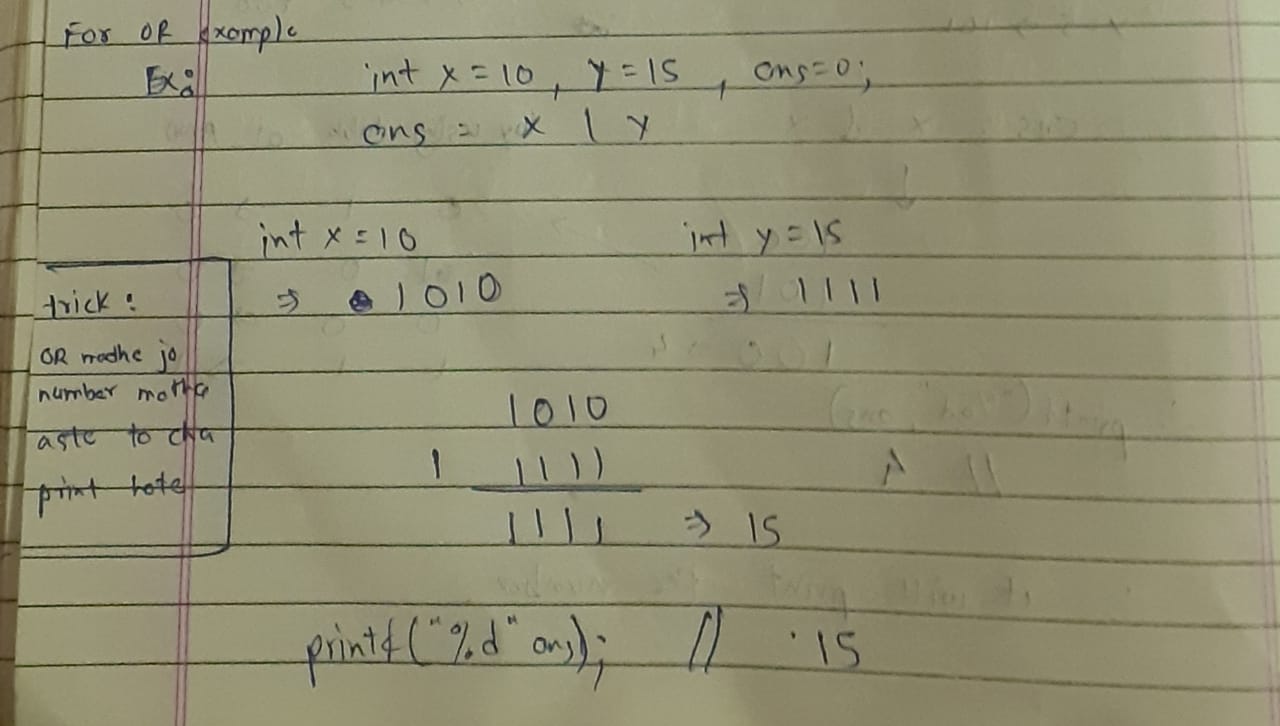 For OR Example
Ex:
int x = 10, y = 15, ans=0;
ans = x | y
int x = 10
int y = 15
⇒ 1010
⇒ 1111
trick:
OR madhe jo
number motha
aste to cha
print hote
1010
| 1111
1111 ⇒ 15
printf("%d" ans); // 15